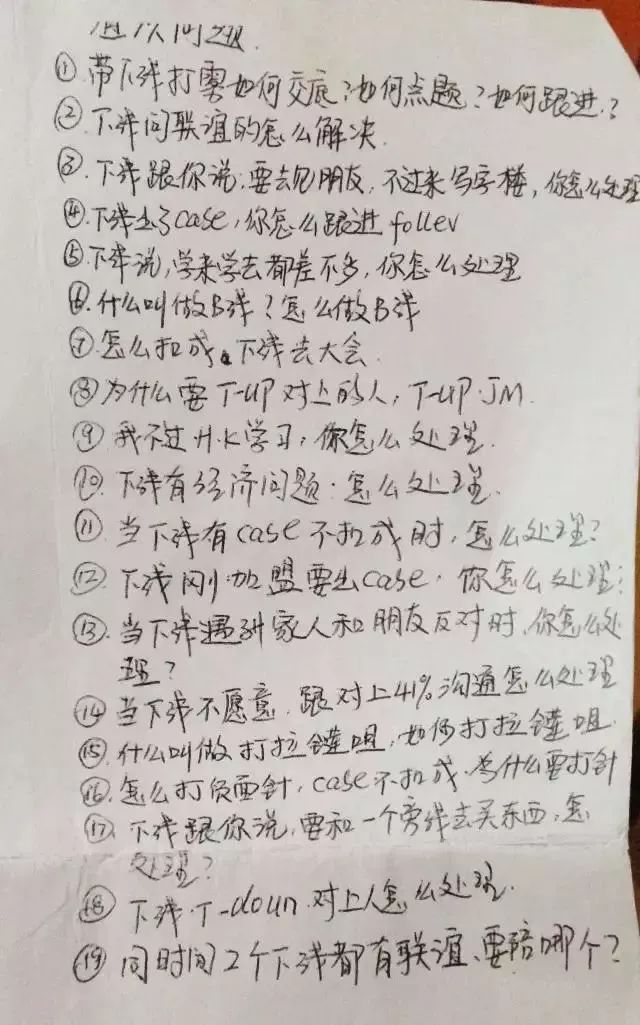 问题
① 带下线打零如何交底?如何点题?如何跟进?
② 下线问联谊的怎么解决
③ 下线跟你说,要去见朋友,不过来写字楼,你怎么处理
④ 下线出了case,你怎么跟进 follev
⑤ 下线说,学来学去都差不多,你怎么处理
⑥ 什么叫做B线?怎么做B线
⑦ 怎么扣成 下线去大会
⑧ 为什么要T-UP对上的人,T-UP JM
⑨ 我不过H.K学习,你怎么处理.
⑩ 下线有经济问题.怎么处理.
⑪ 当下线有case不扣成时,怎么处理?
⑫ 下线刚加盟要出case.你怎么处理?
⑬ 当下线遇到家人和朋友反对时,你怎么处
理?
⑭ 当下线不愿意.跟对上41%沟通怎么处理
⑮ 什么叫做打拉链咀,如何打拉链咀.
⑯ 怎么打负面针,case不扣成.为什么要打针
⑰ 下线跟你说,要和一个旁线去买东西,怎
处理?
⑱ 下线.T-doun.对上人怎么处理.
⑲ 同时间2个下线都有联谊、要陪哪个?